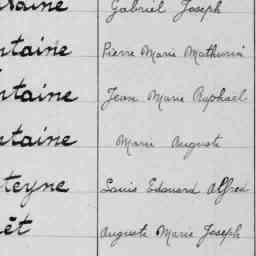 taine Gabriel Joseph
ntaine Pierre Marie Mathurin
ntaine Jean Marie Raphael
ntaine Marie Auguste
teyne Louis Edouard Alfred
êt Auguste Marie Joseph